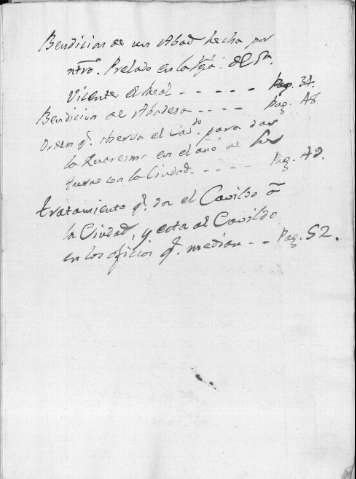 Bendicion de un Abad hecha por
ntro. Prelado en la Yga. de Sn.
Vicente el Real - - - - - Pag. 34.
Bendicion de Abadesa - - - - Pag. 48
Orden q. observa el Cavdo. para dar
la Quaresma en el año de
con la Ciudad - - - - - Pag. 49.
tratamiento q. da el Cavildo â
la Ciudad, y esta al Cavildo
en los oficios q. median - - Pag. 52.